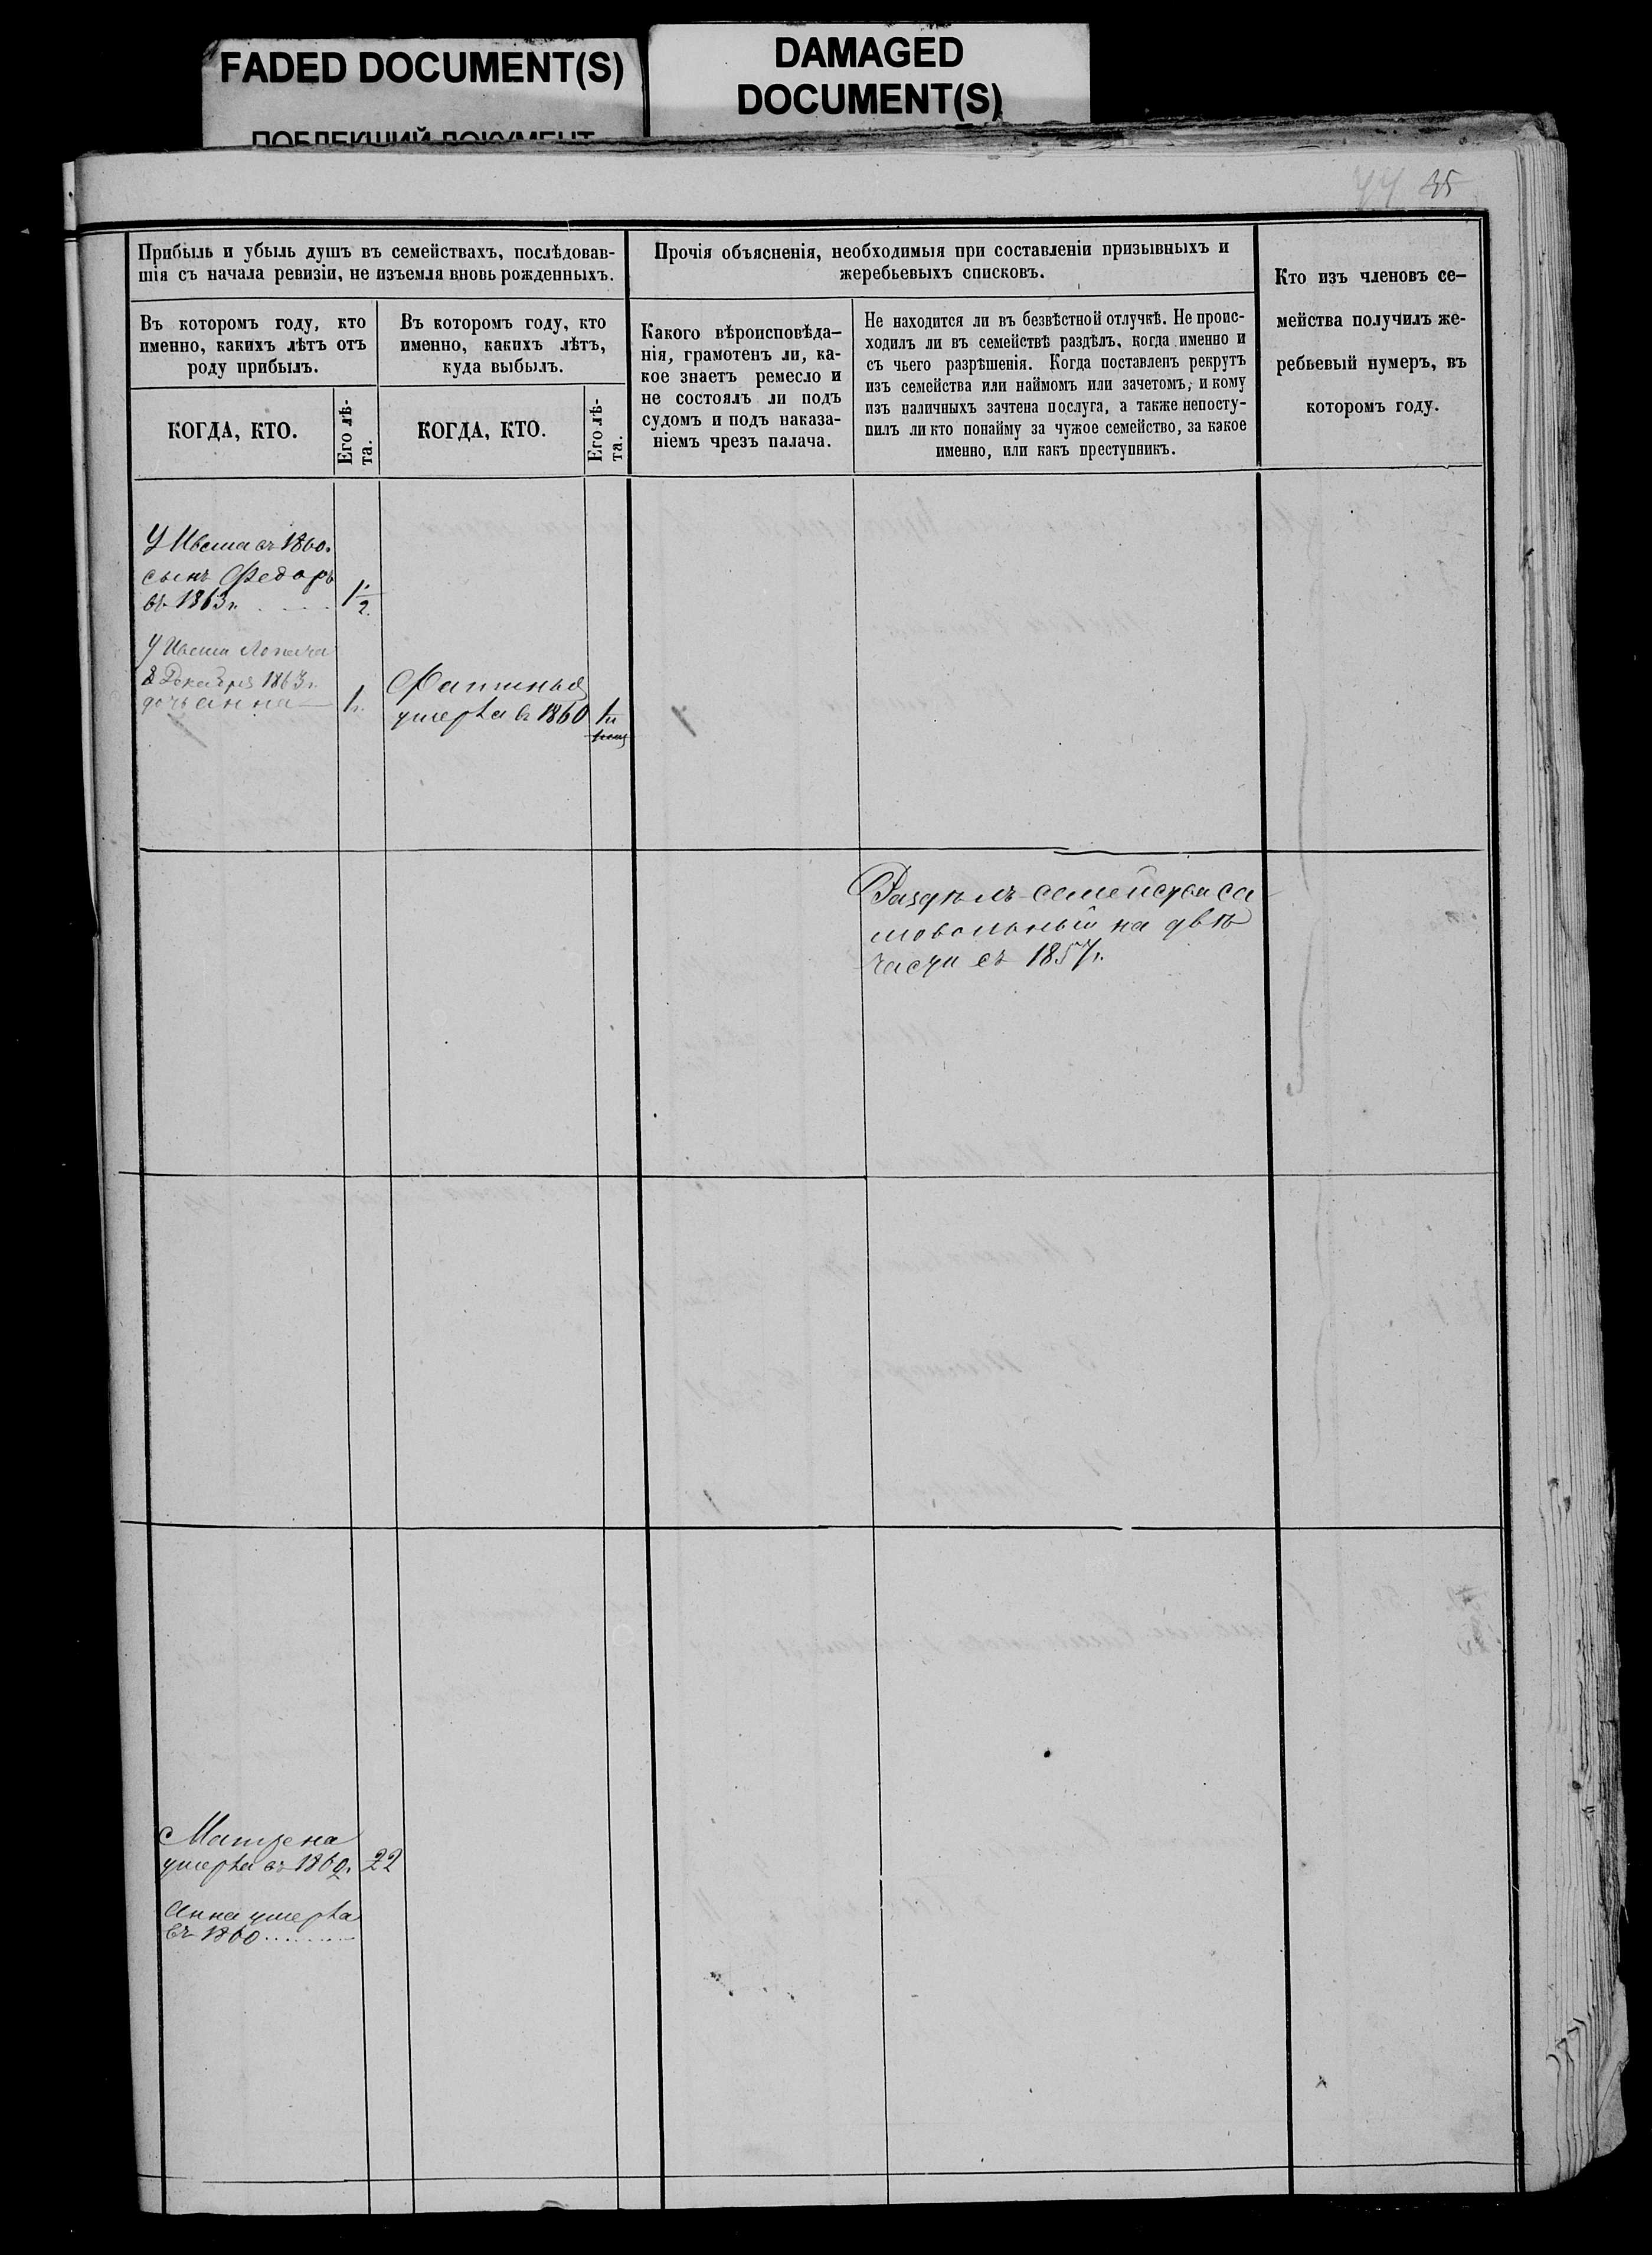 FADED DOCUMENT(S)
ПОБЛЕКШИЙ ДОКУМЕНТ
DAMAGED
DOCUMENT(S)
35
Прибыль и убыль душъ въ семействахъ, послѣдовав-
шія съ начала ревизіи, не изъемля вновь рожденныхъ.
Въ которомъ году, кто
именно, какихъ лѣтъ отъ
роду прибылъ.
КОГДА, КТО.
Его лѣ-
та.
Въ которомъ году, кто
именно, какихъ лѣтъ,
куда выбылъ.
КОГДА, КТО.
Его лѣ-
та.
Прочія объясненія, необходимыя при составленіи призывныхъ и
жеребьевыхъ списковъ.
Какого вѣроисповѣда-
нія, грамотенъ ли, ка-
кое знаетъ ремесло и
не состоялъ ли подъ
судомъ и подъ наказа-
ніемъ чрезъ палача.
Не находится ли въ безвѣстной отлучкѣ. Не проис-
ходилъ ли въ семействѣ раздѣлъ, когда именно и
съ чьего разрѣшенія. Когда поставленъ рекрутъ
изъ семейства или наймомъ или зачетомъ, и кому
изъ наличныхъ зачтена послуга, а также непосту-
пилъ ли кто понайму за чужое семейство, за какое
именно, или какъ преступникъ.
Кто изъ членовъ се-
мейства получилъ же-
ребьевый нумеръ, въ
которомъ году.
У Ивана въ 1860.
сынъ Федоръ
въ 1863г. 1/2
У Ивана
Декабря 1863г.
дочь Анна 1.
умерла въ 1860
Раздѣлъ семейства са
мовольный на двѣ
части съ 1857г.
Матрена
умерла въ 1860. 22
Анна умерла
въ 1860